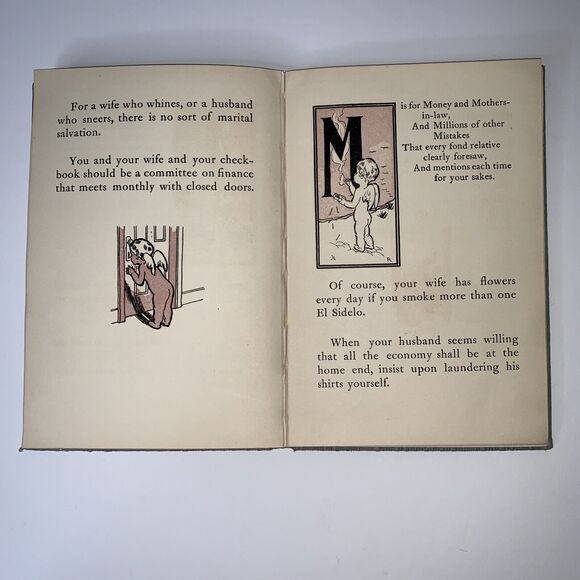 For a wife who whines, or a husband
who sneers, there is no sort of marital
salvation.
You and your wife and your check-
book should be a committee on finance
that meets monthly with closed doors.
M
is for Money and Mothers-
in-law,
And Millions of other
Mistakes
That every fond relative
clearly foresaw,
And mentions each time
for your sakes.
Of course, your wife has flowers
every day if you smoke more than one
El Sidelo.
When your husband seems willing
that all the economy shall be at the
home end, insist upon laundering his
shirts yourself.